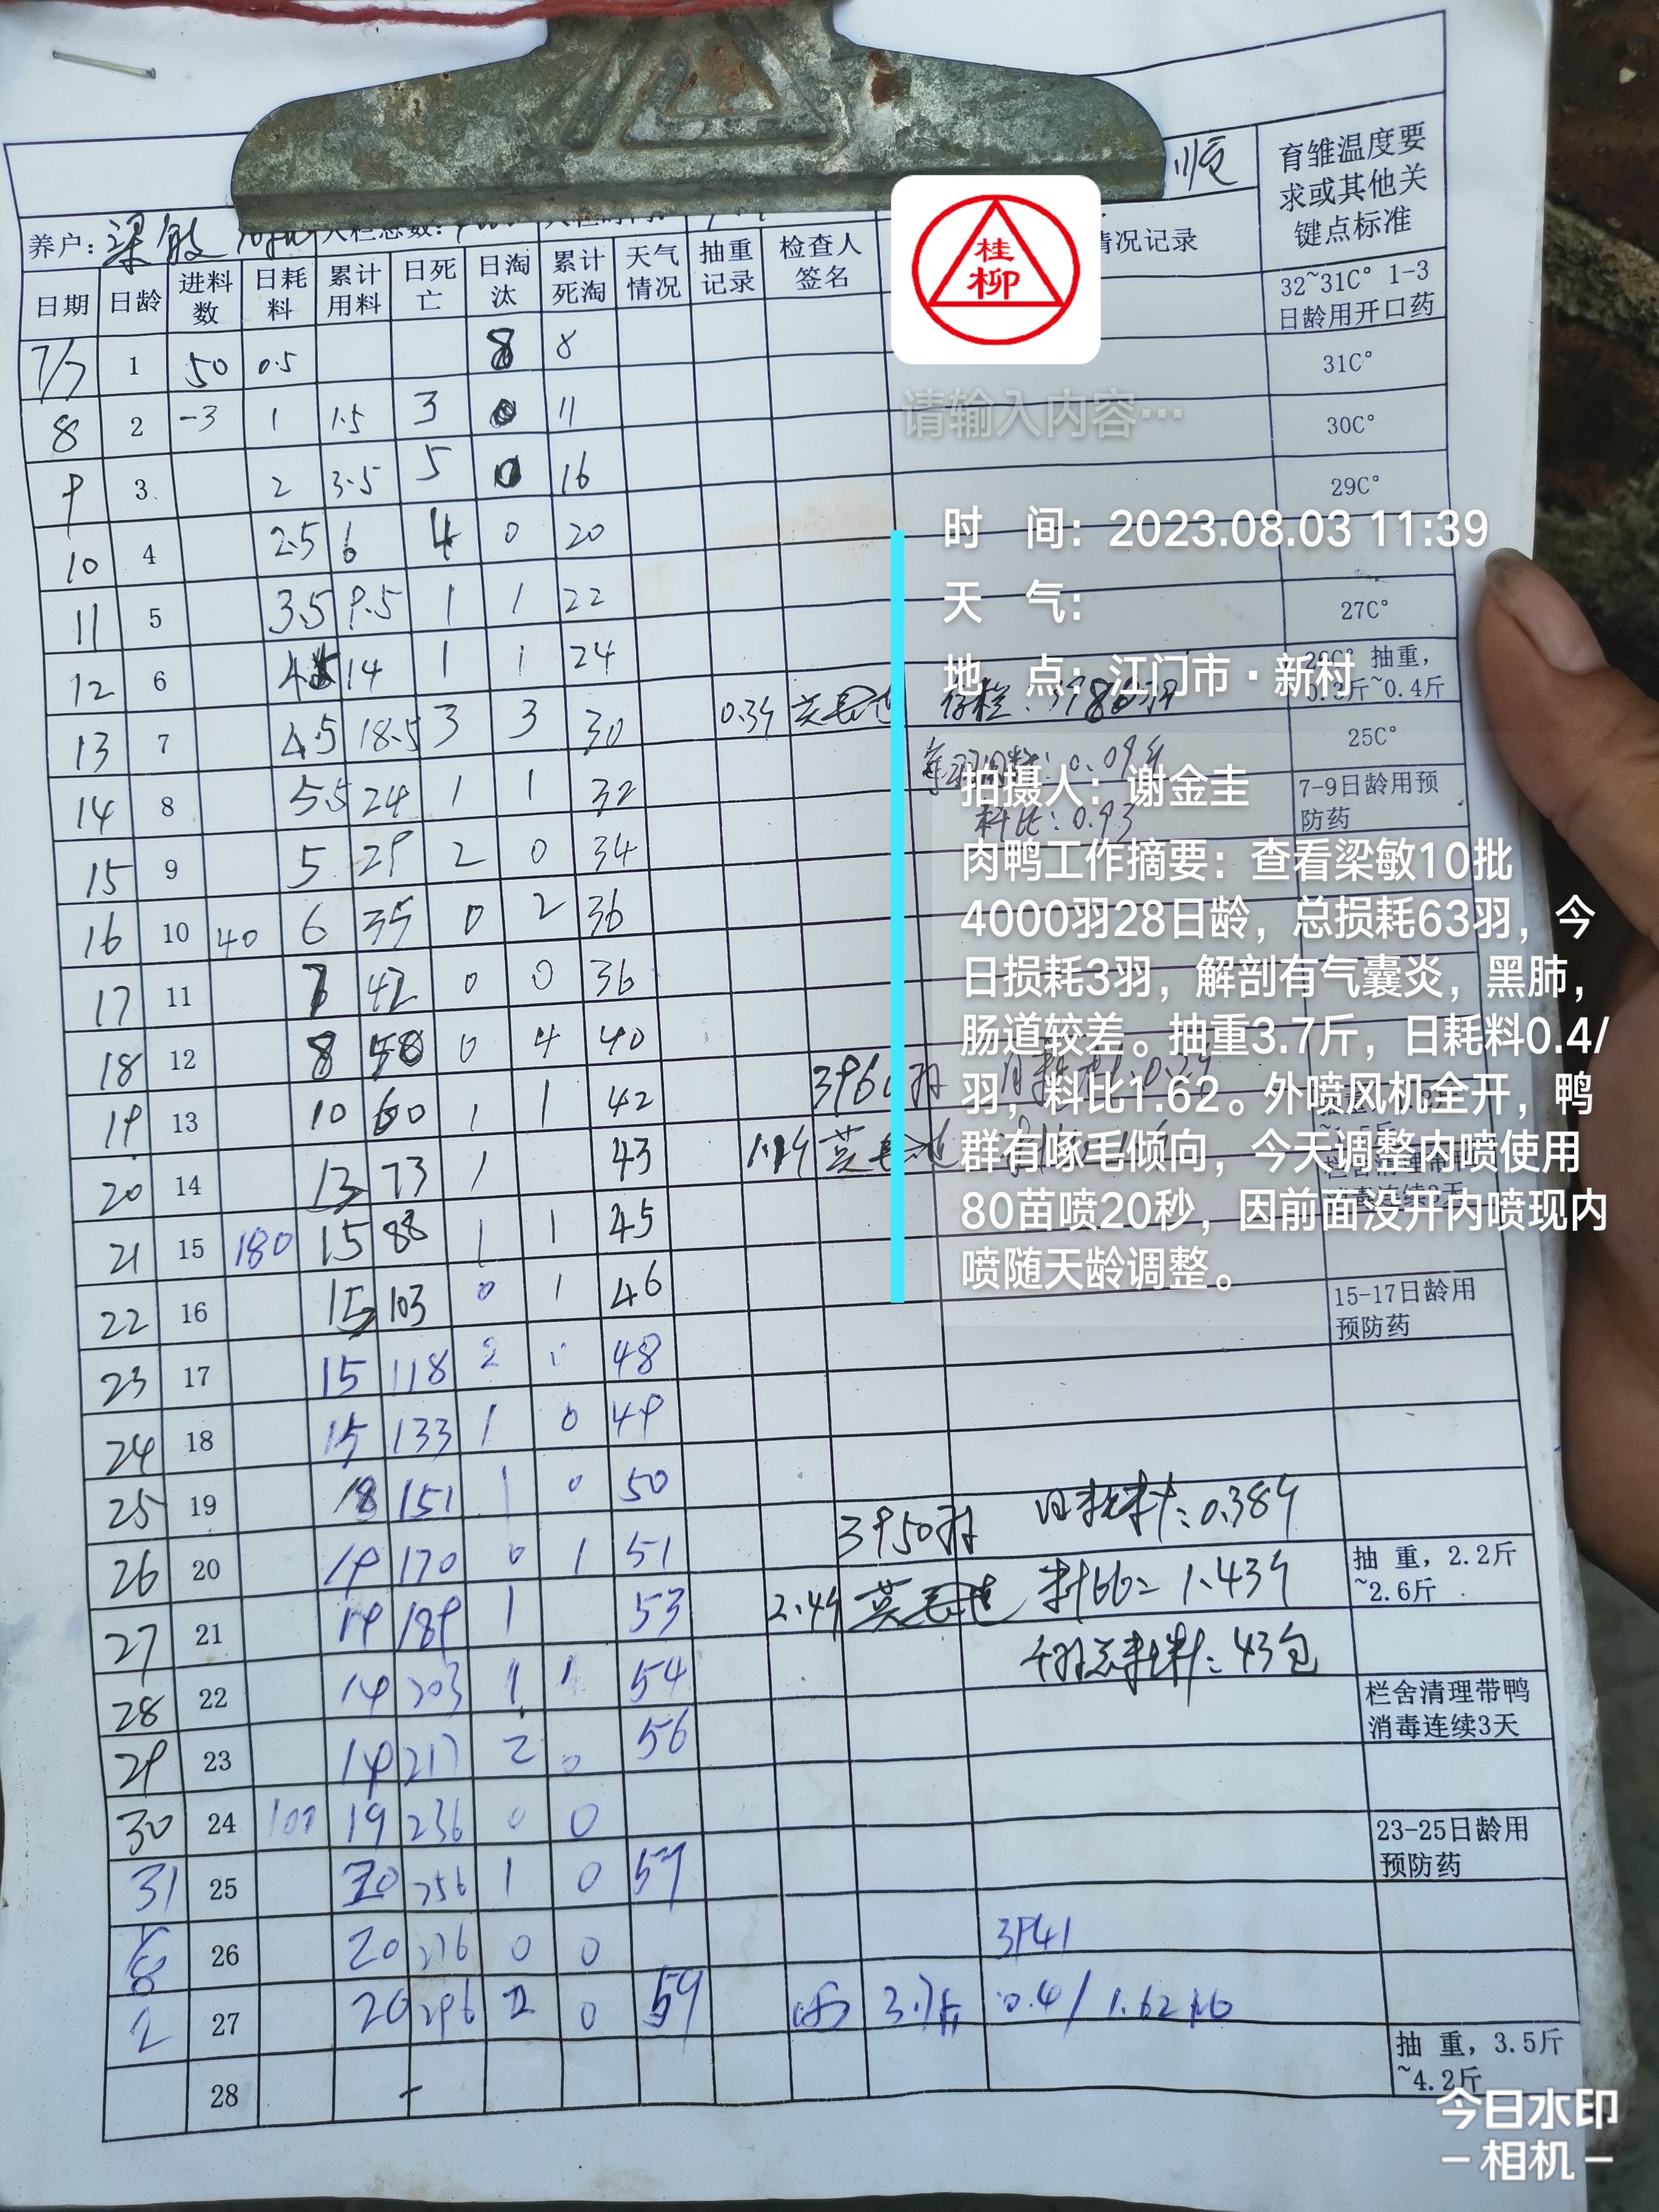 顺
育雏温度要
求或其他关
键点标准
养户: 梁敏 入栏总数:
情况记录
日期 日龄 进料数 日耗料 累计用料 日死亡 日淘汰 累计死淘 天气情况 抽重记录 检查人签名
32~31C° 1-3
日龄用开口药
7/7 1 50 0.5 8 8 31C°
8 2 -3 1 1.5 3 0 11 30C°
9 3 2 3.5 5 0 16 29C°
10 4 2.5 6 4 0 20
11 5 3.5 9.5 1 1 22 27C°
12 6 4.5 14 1 1 24 抽重,
0.3斤~0.4斤
13 7 4.5 18.5 3 3 30 25C°
料比:0.93
14 8 5.5 24 1 1 32 7-9日龄用预
防药
15 9 5 29 2 0 34
16 10 40 6 35 0 2 36
17 11 7 42 0 0 36
18 12 8 50 0 4 40
19 13 10 60 1 1 42
20 14 13 73 1 43
21 15 180 15 88 1 1 45
22 16 15 103 0 1 46 15-17日龄用
预防药
23 17 15 118 2 48
24 18 15 133 1 0 49
25 19 18 151 1 0 50
3950羽 日耗料:0.38斤
26 20 19 170 0 1 51 抽 重, 2.2斤
~2.6斤
27 21 19 189 1 53 2.4斤 料比= 1.43斤
千羽总耗料:43包
28 22 14 203 1 1 54 栏舍清理带鸭
消毒连续3天
29 23 14 217 2 0 56
30 24 100 19 236 0 0 23-25日龄用
预防药
31 25 20 256 1 0 57
26 20 276 0 0 3941
2 27 20 296 2 0 59 3.7斤 0.4/1.62
28 抽 重, 3.5斤
~4.2斤
桂
柳
请输入内容…
时 间: 2023.08.03 11:39
天 气:
地 点: 江门市·新村
拍摄人: 谢金圭
肉鸭工作摘要: 查看梁敏10批
4000羽28日龄，总损耗63羽，今
日损耗3羽，解剖有气囊炎，黑肺，
肠道较差。抽重3.7斤，日耗料0.4/
羽，料比1.62。外喷风机全开，鸭
群有啄毛倾向，今天调整内喷使用
80苗喷20秒，因前面没开内喷现内
喷随天龄调整。
今日水印
-相机-